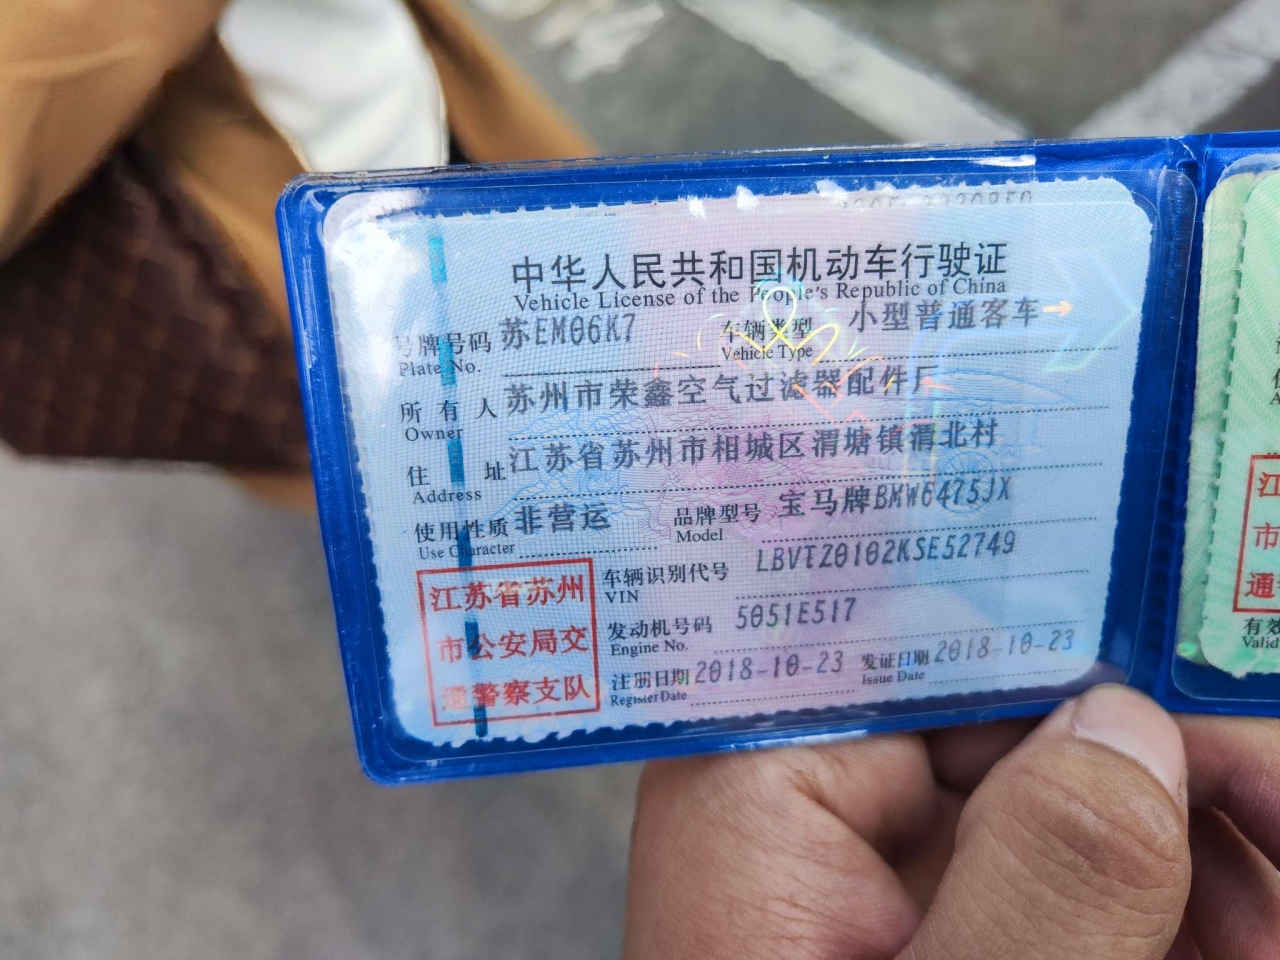 中华人民共和国机动车行驶证
Vehicle License of the People's Republic of China
号牌号码 苏EM06K7 车辆类型 小型普通客车
Plate No. Vehicle Type
所有人 苏州市荣鑫空气过滤器配件厂
Owner
住址 江苏省苏州市相城区渭塘镇渭北村
Address
使用性质 非营运 品牌型号 宝马牌BMW6475JX
Use Character Model
江苏省苏州
市公安局交
通警察支队
车辆识别代号 LBVTZ0102KSE52749
VIN
发动机号码 5051E517
Engine No.
注册日期 2018-10-23 发证日期 2018-10-23
Register Date Issue Date
江
市
通
有效
Valid